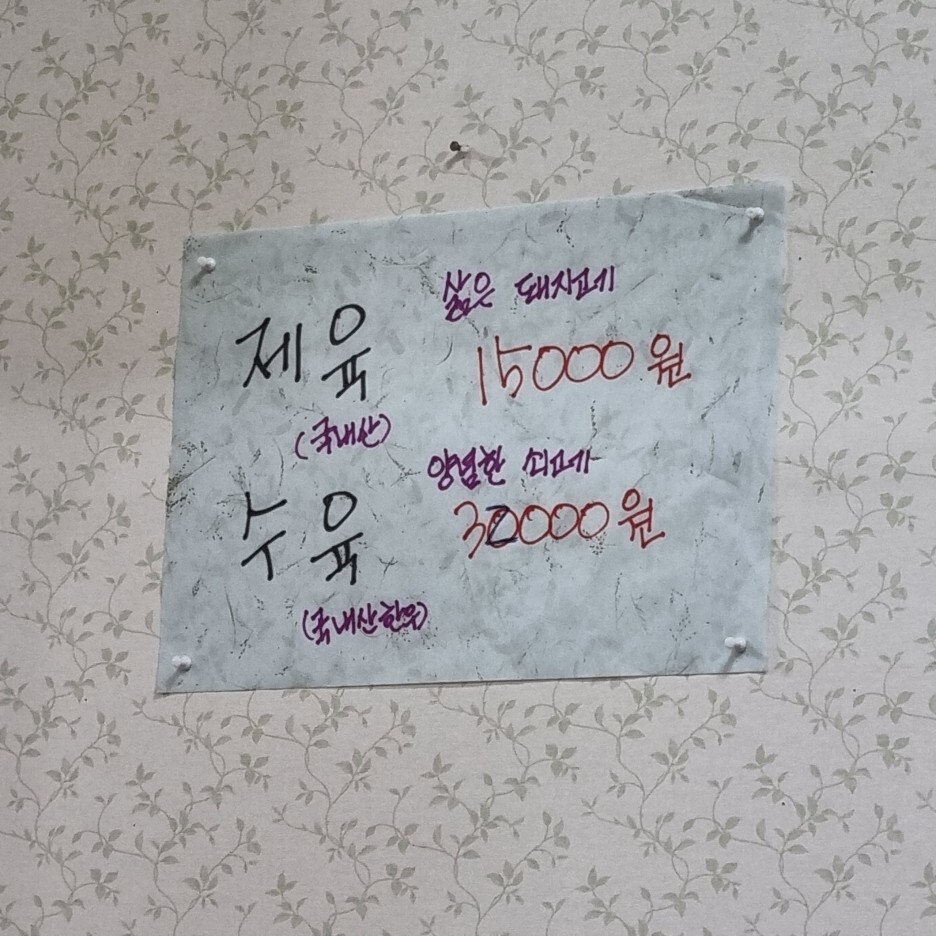 삶은 돼지고기
제육 15000원
(국내산)
양념한 쇠고기
수육 32000원
(국내산한우)